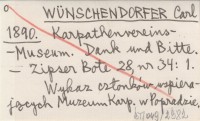 WÜNSCHENDORFER Carl
1890. Karpathenvereins-
-Museum. Dank und Bitte.
— Zipser Bote 28 nr 34: 1.
Wykaz członków wspiera
jących Muzeum Karp. w Popradzie.